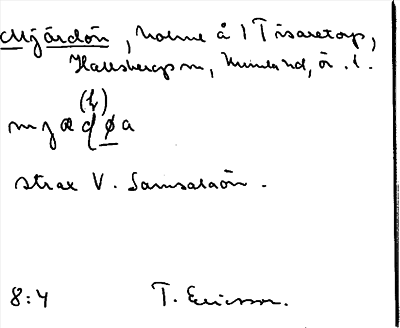 Mjärdön, holme å 1 Tisaretorp,
Hallsbergs sn, Kumla hd, Ör. l.
(h)
mjædøa
strax V. Samsalaön.
8:4 T. Ericsson.